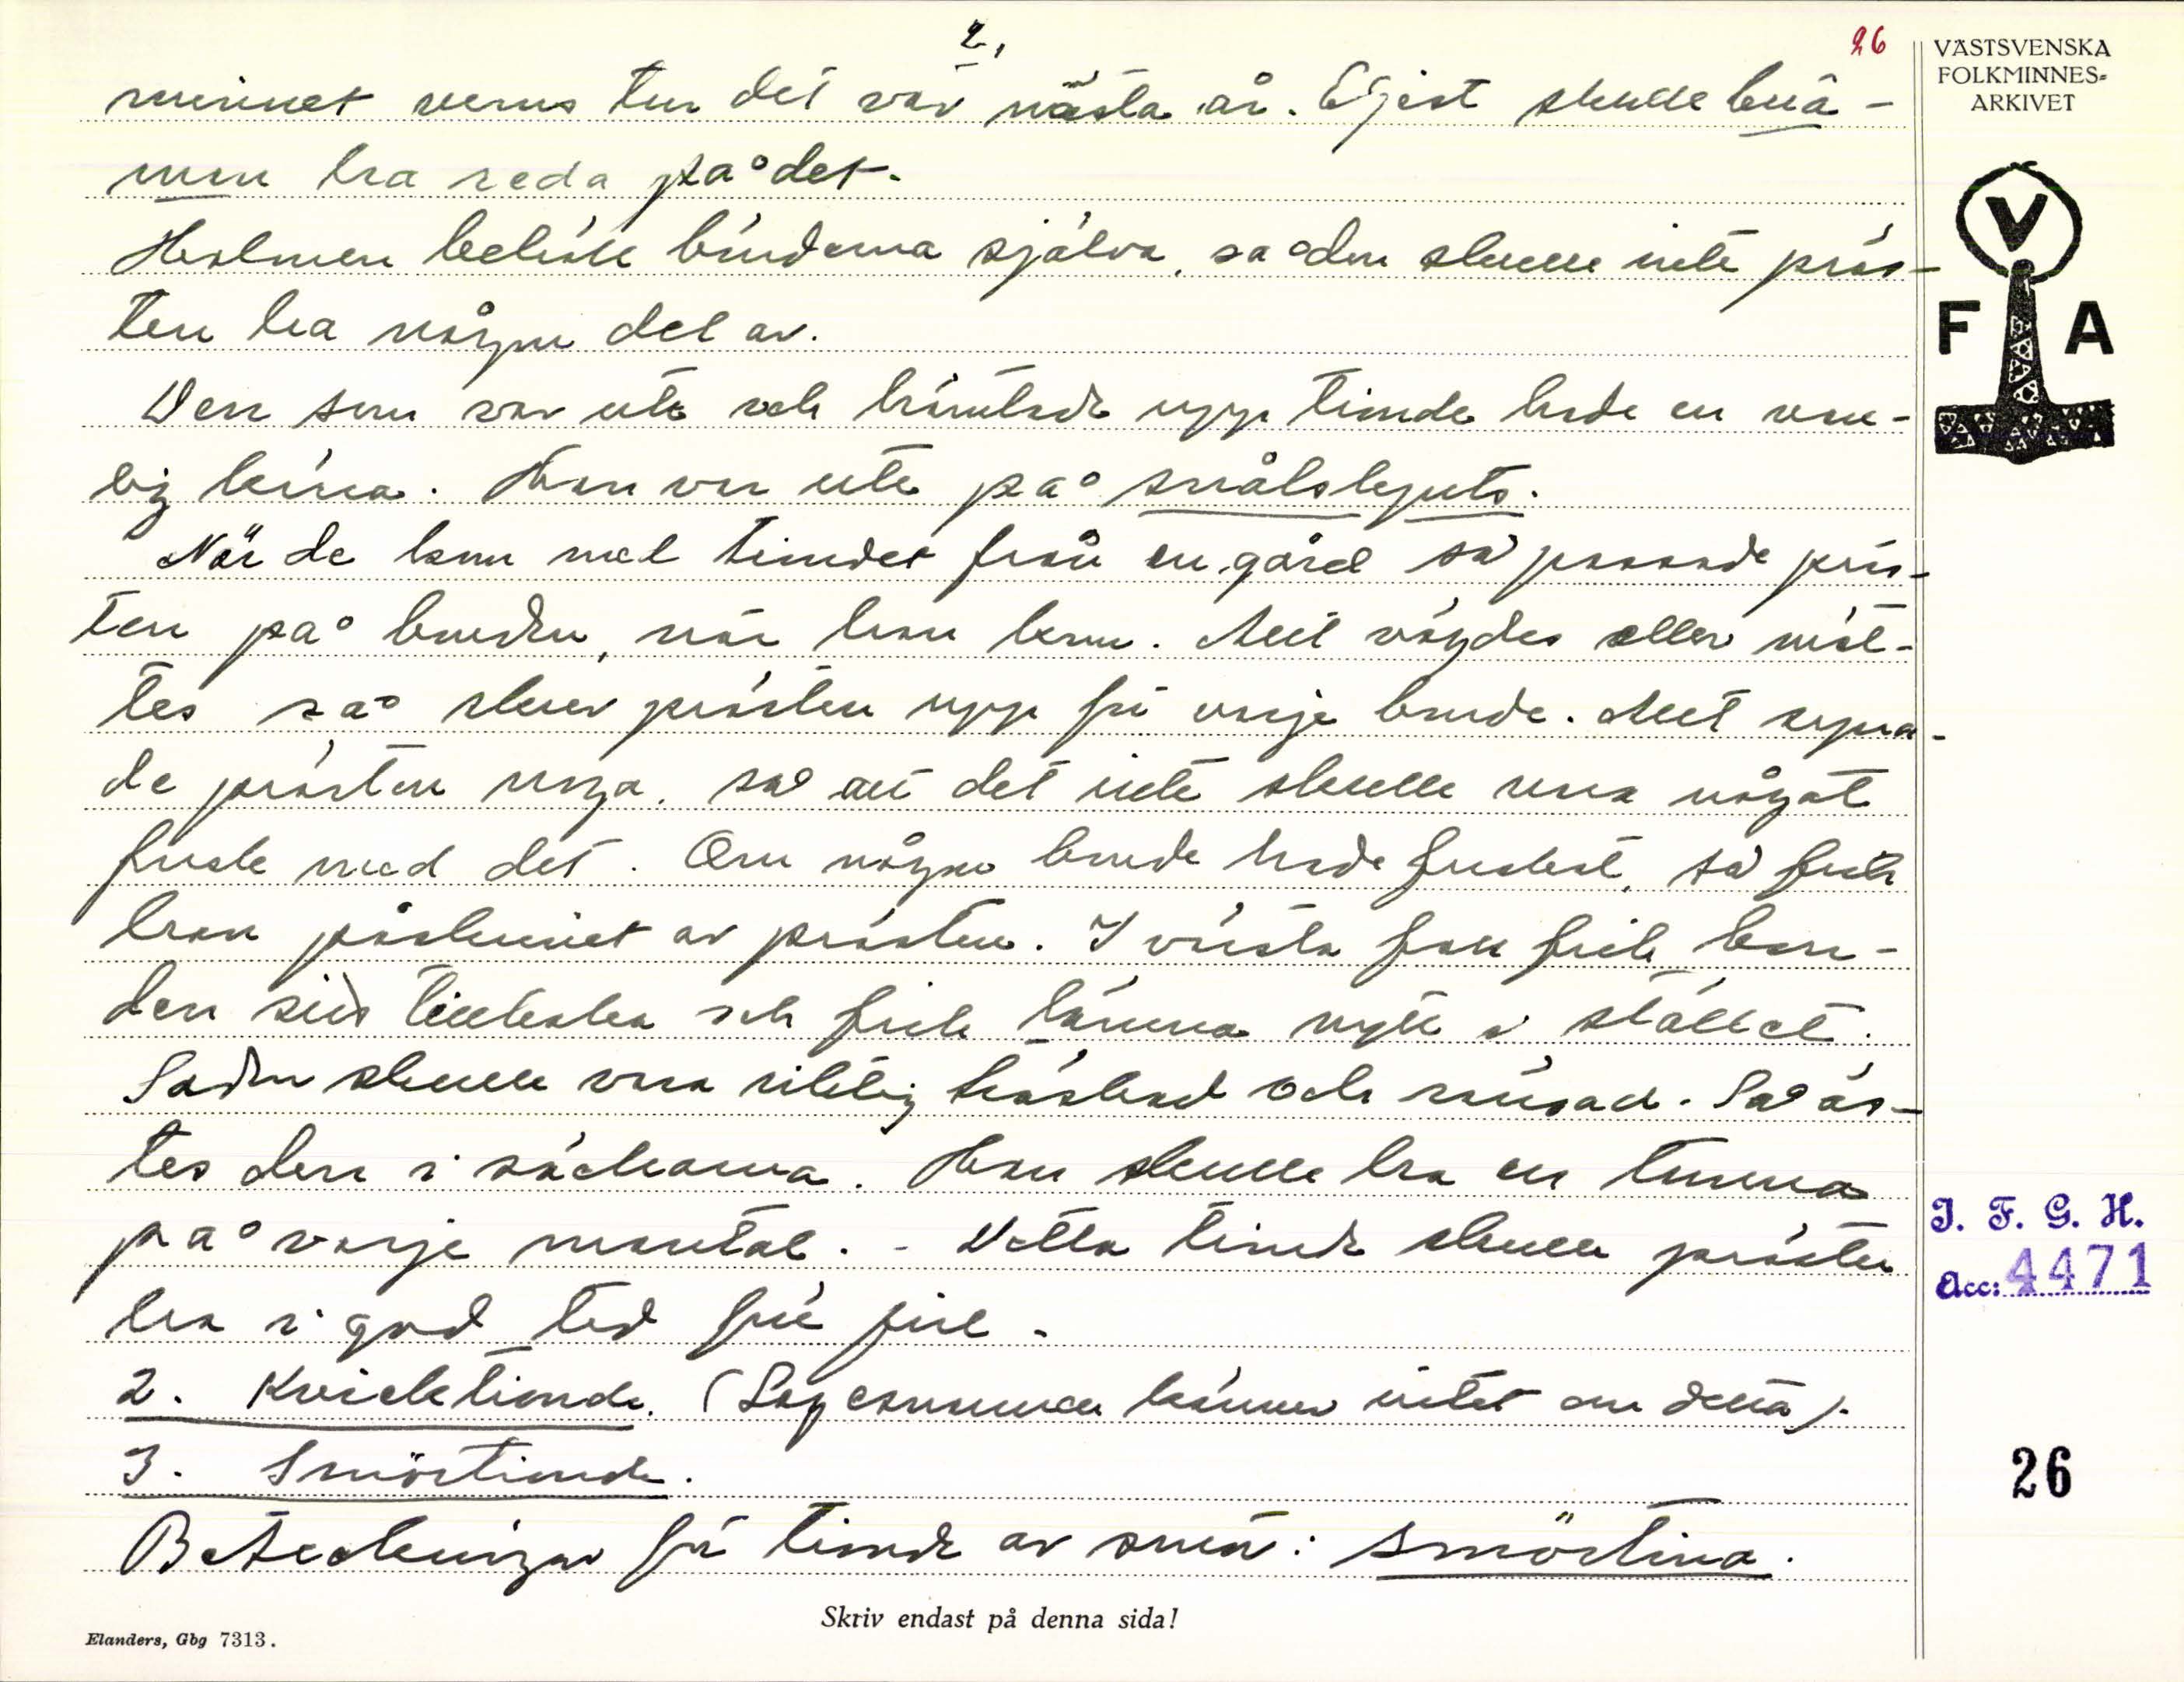 2,
26
minnet vems tur det var nästa år. Eljest skulle
ha reda på det.
Halmen behöll bönderna själva, så den skulle inte präs-
ten ha någon del av.
Den som var ute och hämtade upp tionde hade en van-
lig kärra. Han var ute på
När de kom med tiondet från en gård så passade präs-
ten på bonden, när han kom. Allt vägdes eller mät-
tes så skrev prästen upp för varje bonde. Allt syna-
de prästen noga, så att det inte skulle vara något
fusk med det. Om någon bonde hade fuskat, så fick
han påskrivet av prästen. I värsta fall fick bon-
den sitt tillbaka och fick lämna nytt i stället.
Säden skulle vara riktig tröskad och rensad. Så ös-
tes den i säckarna. Han skulle ha en tunna
på varje mantal. - Detta tionde skulle prästen
ha i god tid före jul.
2. Kvicktionde. (Sagesmannen känner intet om detta).
3. Smörtionde.
Beteckningar för tionde av smör: smörtina.
Skriv endast på denna sida!
Elanders, Gbg 7313.
VÄSTSVENSKA
FOLKMINNES-
ARKIVET
V
F A
I. F. G. H.
Acc: 4471
26